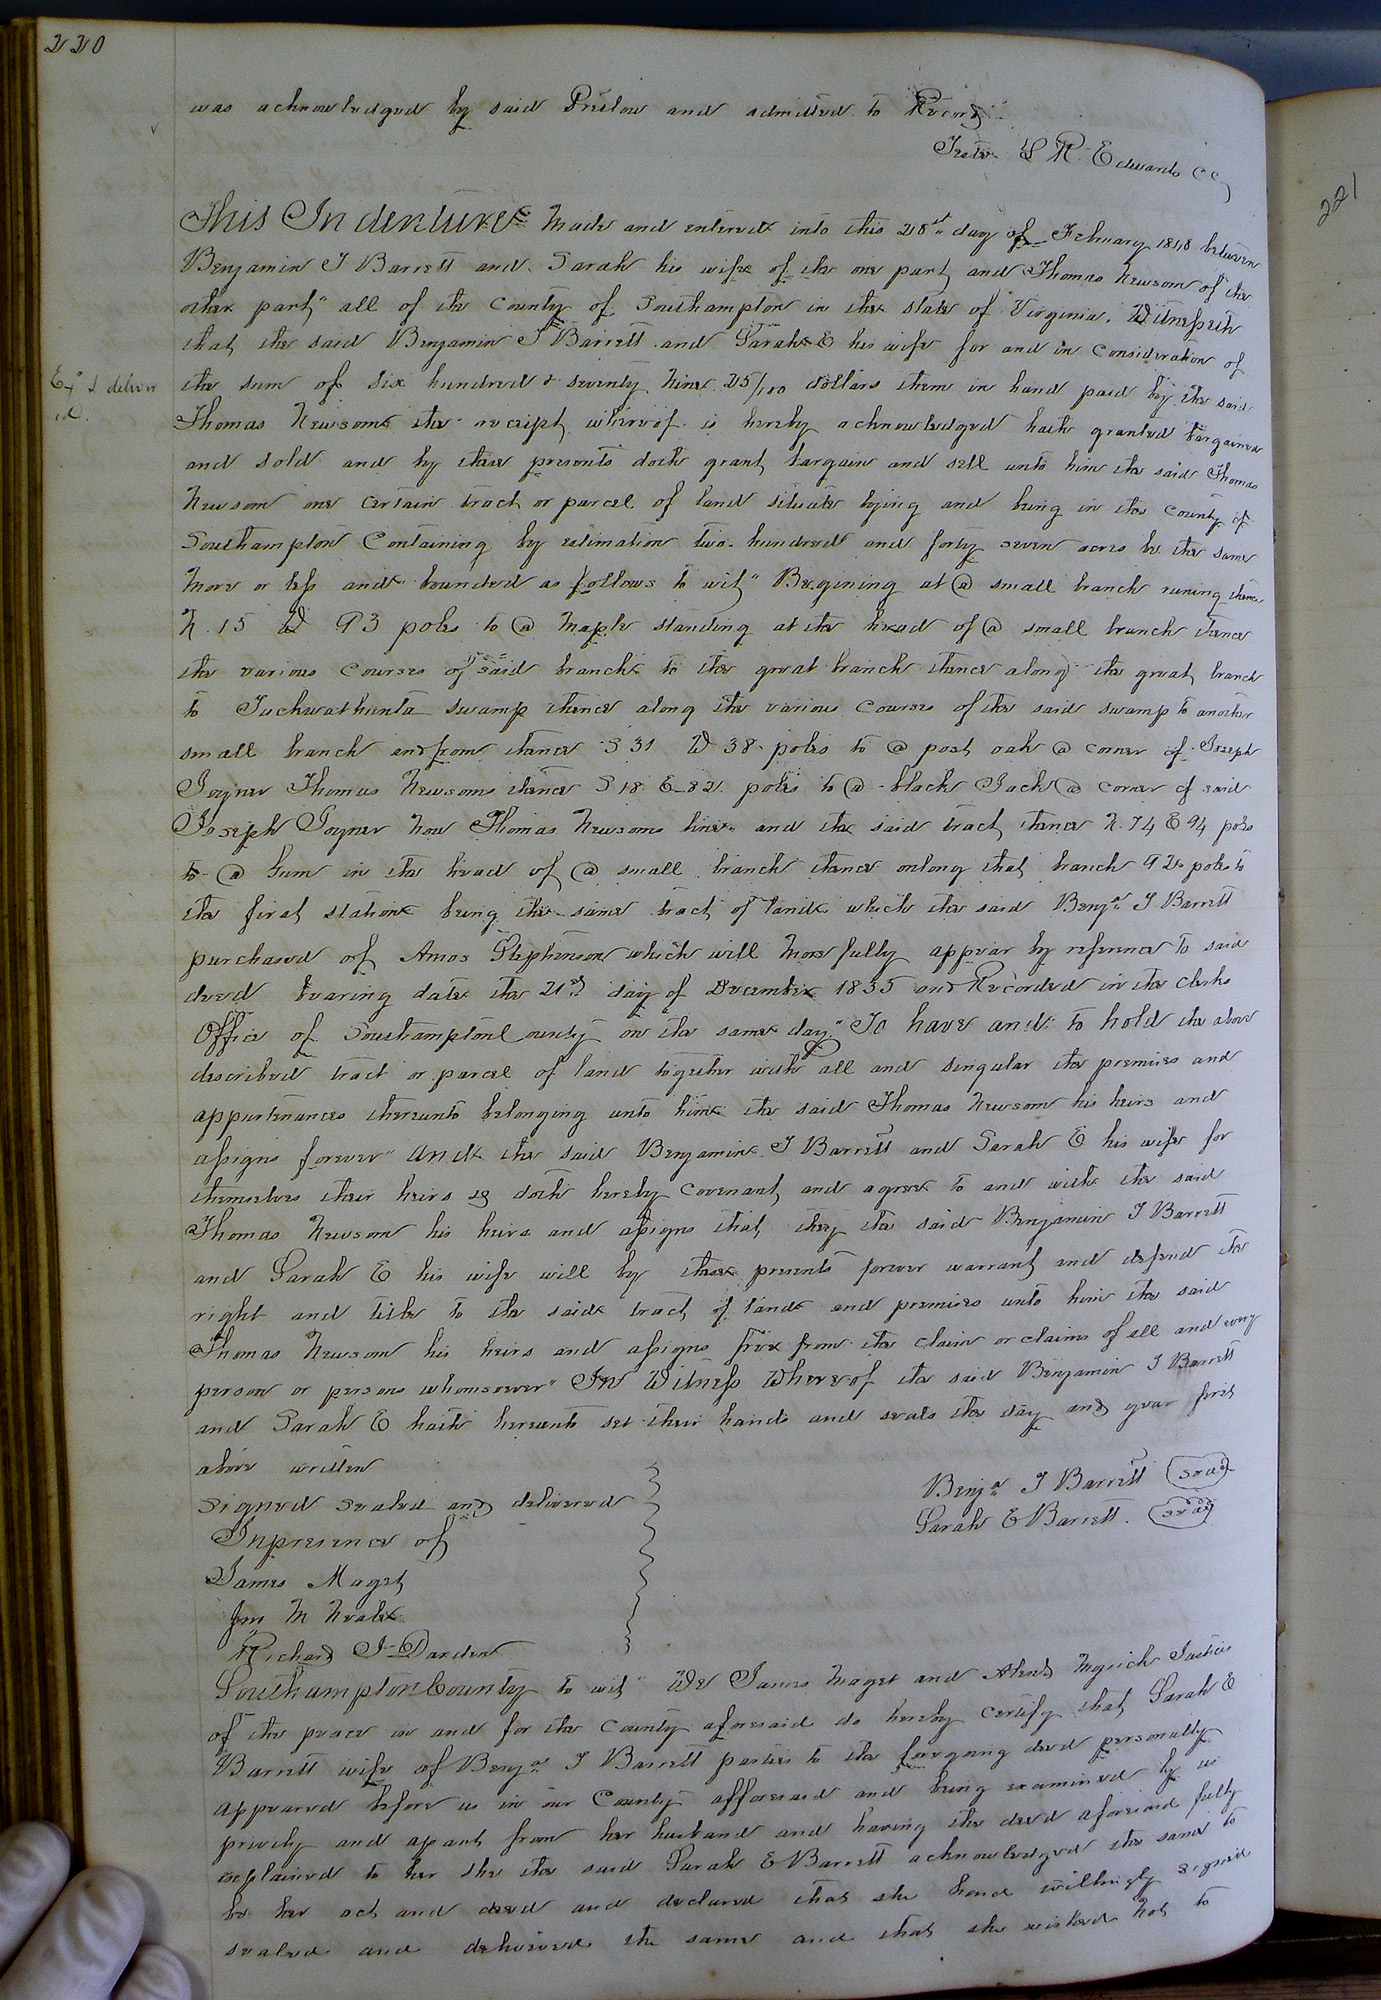 220
was acknowledged by said Prelow and admitted to Record
Teste L R Edwards CC
This Indenture Made and entered into this 28th day of February 1848 between
Benjamin J Barrett and Sarah his wife of the one part and Thomas Newsom of the
other part" all of the County of Southampton in the state of Virginia. Witnesseth
that the said Benjamin J Barrett and Sarah E his wife for and in Consideration of
Exd & deliver
ed.
the sum of six hundred & seventy Nine 25/100 dollars them in hand paid by the said
Thomas Newsom the receipt whereof is hereby acknowledged hath granted bargained
and sold and by these presents doth grant bargain and sell unto him the said Thomas
Newsom one certain tract or parcel of land situate lying and being in the County of
Southampton Containing by estimation two hundred and forty seven acres be the same
More or less and bounded as follows to wit" Begining at @ small branch runing thence
N. 15 W 93 poles to @ Maple standing at the head of @ small branch thence
the various Courses of said branch to the great branch thence along the great branch
to swamp thence along the various Courses of the said swamp to another
small branch and from thence S 31 W 38 poles to @ post oak @ corner of Joseph
Joyner Thomas Newsoms thence S 18 E 82 poles to @ black Jack @ corner of said
Joseph Joyner Now Thomas Newsoms line and the said tract thence N. 74 E 94 poles
to @ Gum in the head of @ small branch thence onlong that branch 92 poles to
the first station being the same tract of land which the said Benjn J Barrett
purchased of Amos Stephenson which will More fully appear by reference to said
deed bearing date the 21st day of December 1835 and Recorded in the clerks
Office of Southampton County on the same day" To have and to hold the above
described tract or parcel of land together with all and singular the premises and
appurtenances thereunto belonging unto him the said Thomas Newsom his heirs and
assigns forever" And the said Benjamin J Barrett and Sarah E his wife for
themselves their heirs &c doth hereby Covenant and agree to and with the said
Thomas Newsom his heirs and assigns that they the said Benjamin J Barrett
and Sarah E his wife will by these presents forever warrant and defend the
right and title to the said tract of land and premises unto him the said
Thomas Newsom his heirs and assigns free from the claim or claims of all and every
person or persons whomsoever" In Witness Whereof the said Benjamin J Barrett
and Sarah E hath hereunto set their hands and seals the day and year first
above written
Signed sealed and delivered
Benjn J Barrett (seal)
Inpresence of
Sarah E Barrett. (seal)
James Maget
Jno M
Richard J Darden
Southampton County to wit" We James Maget and Myrick Justices
of the peace in and for the County aforesaid do hereby certify that Sarah E
Barrett wife of Benjn J Barrett parties to the foregoing deed personally
appeared before us in our County afforesaid and being examined by us
privily and apart from her husband and having the deed aforesaid fully
explained to her she the said Sarah E Barrett acknowledged the same to
be her act and deed and declared that she had willingly signed
sealed and delivered the same and that she wished not to
221